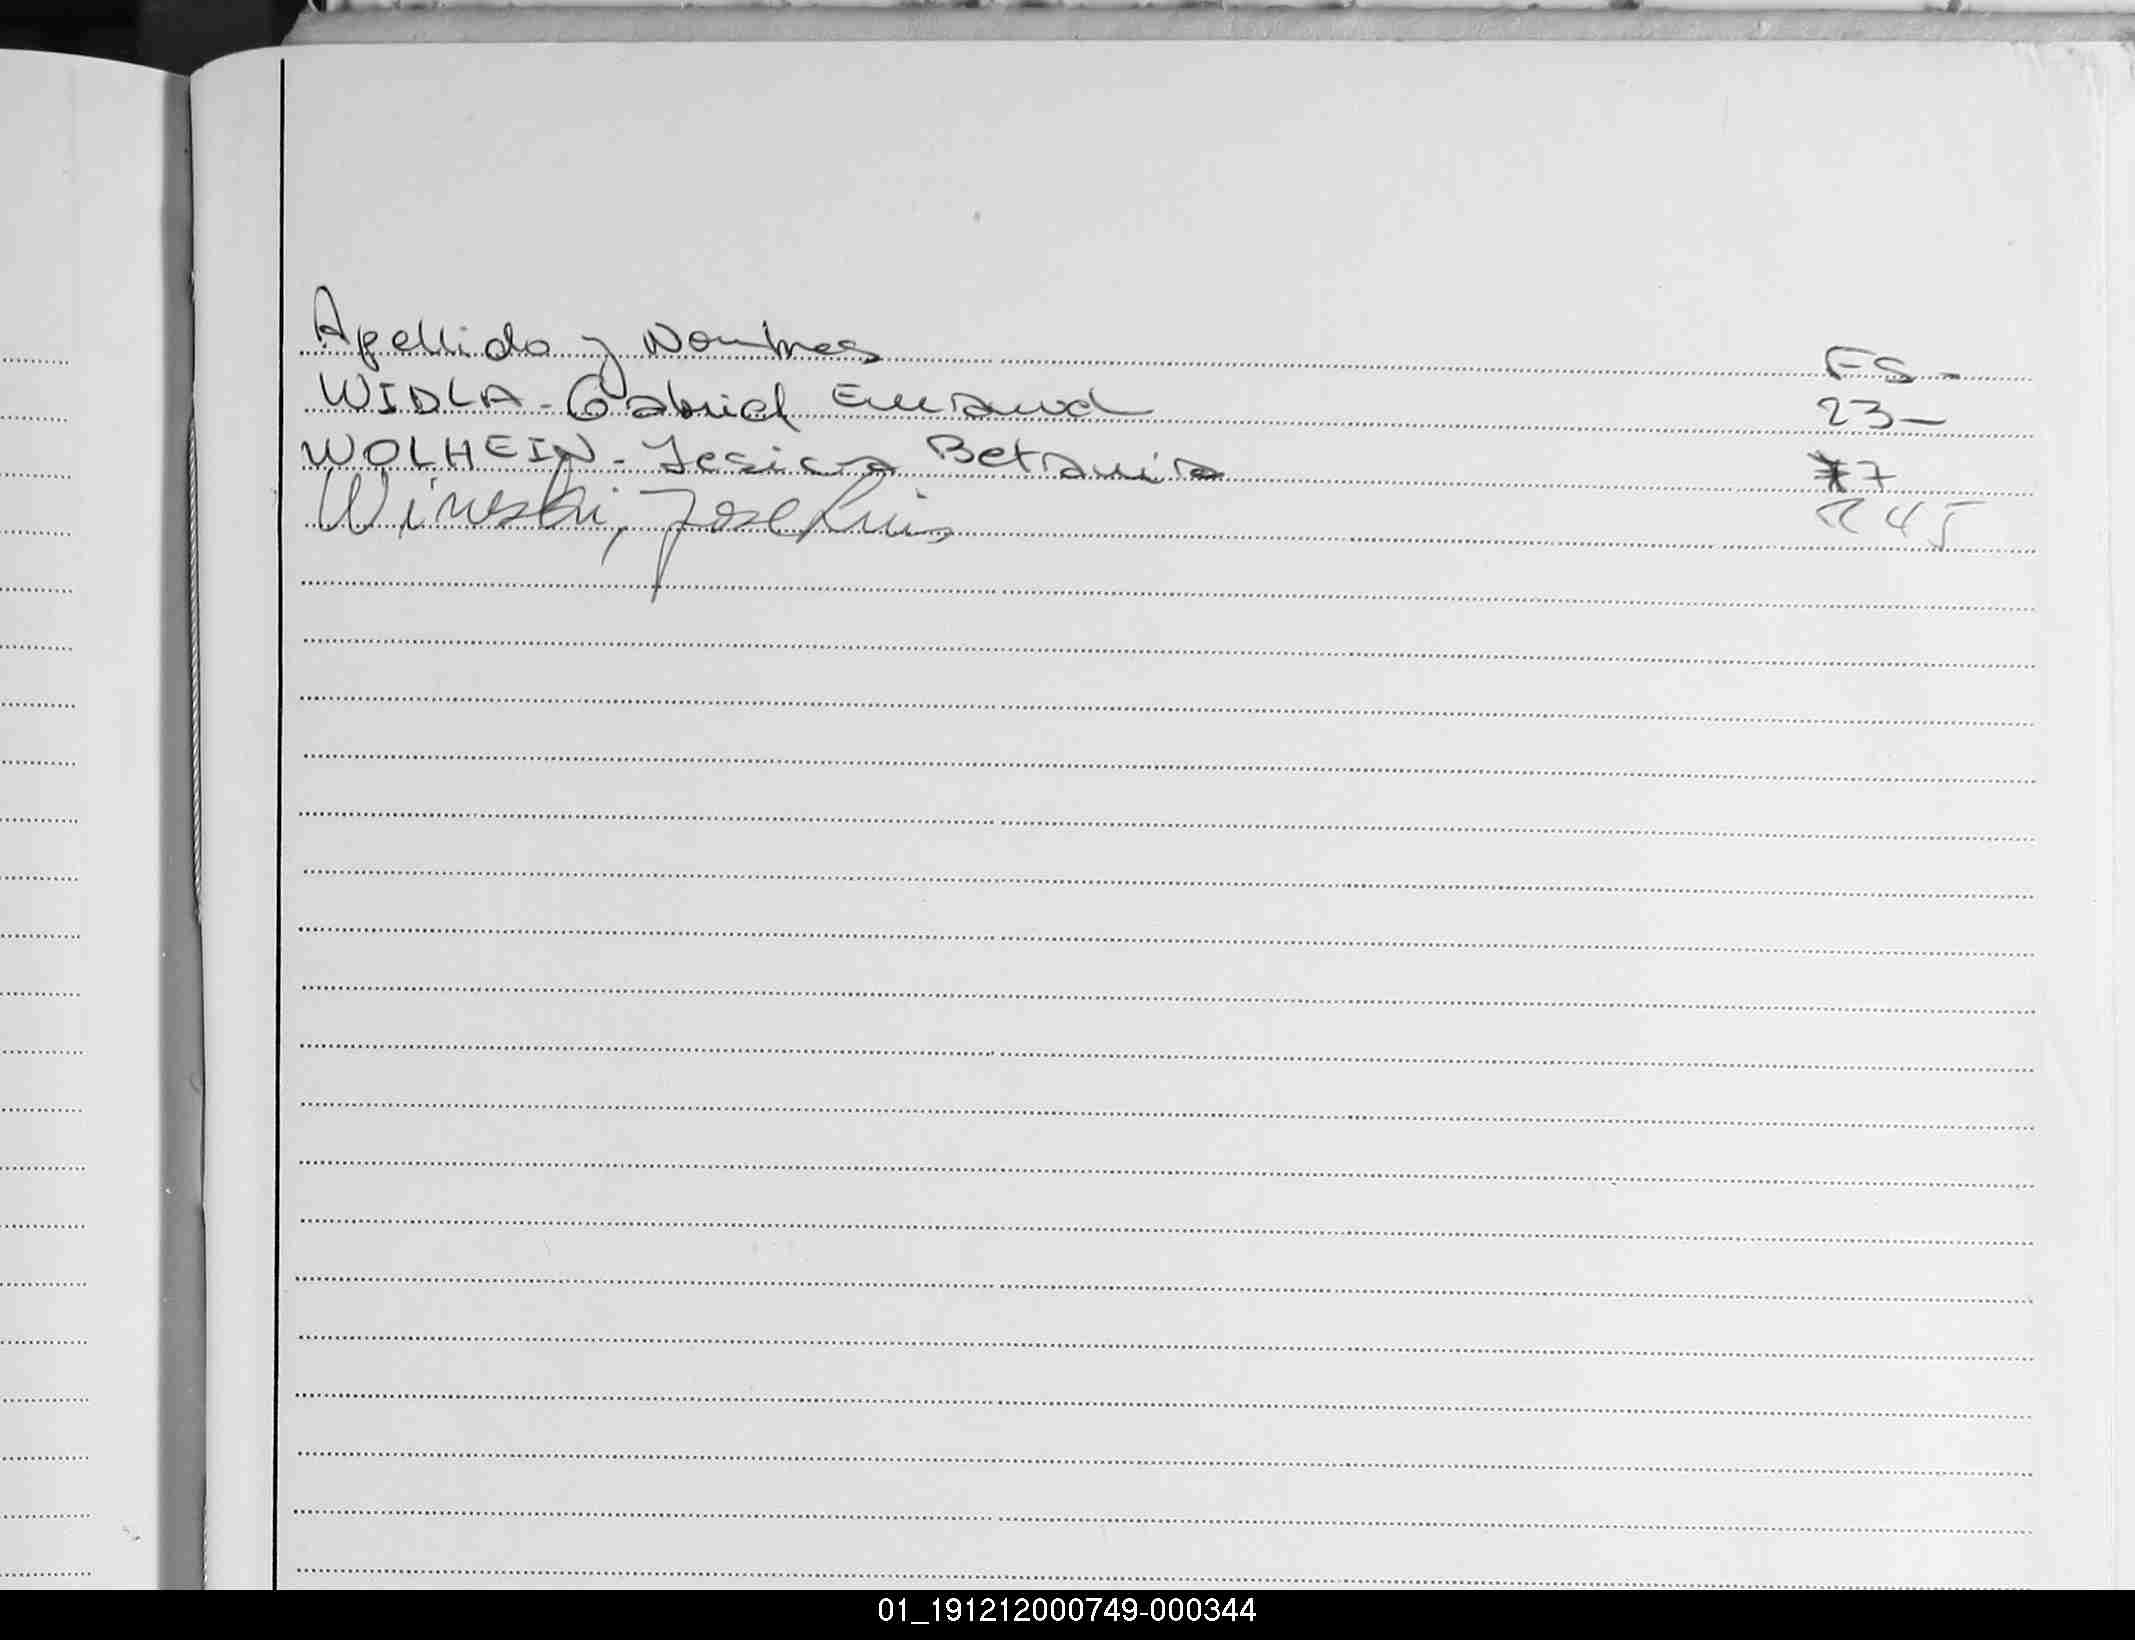 Apellido y Nombres FS-
WIDLA - Gabriel Emanuel 23-
WOLHEIN - Jesica Betania 77
Wineski, Jose Luis 245
01_191212000749-000344